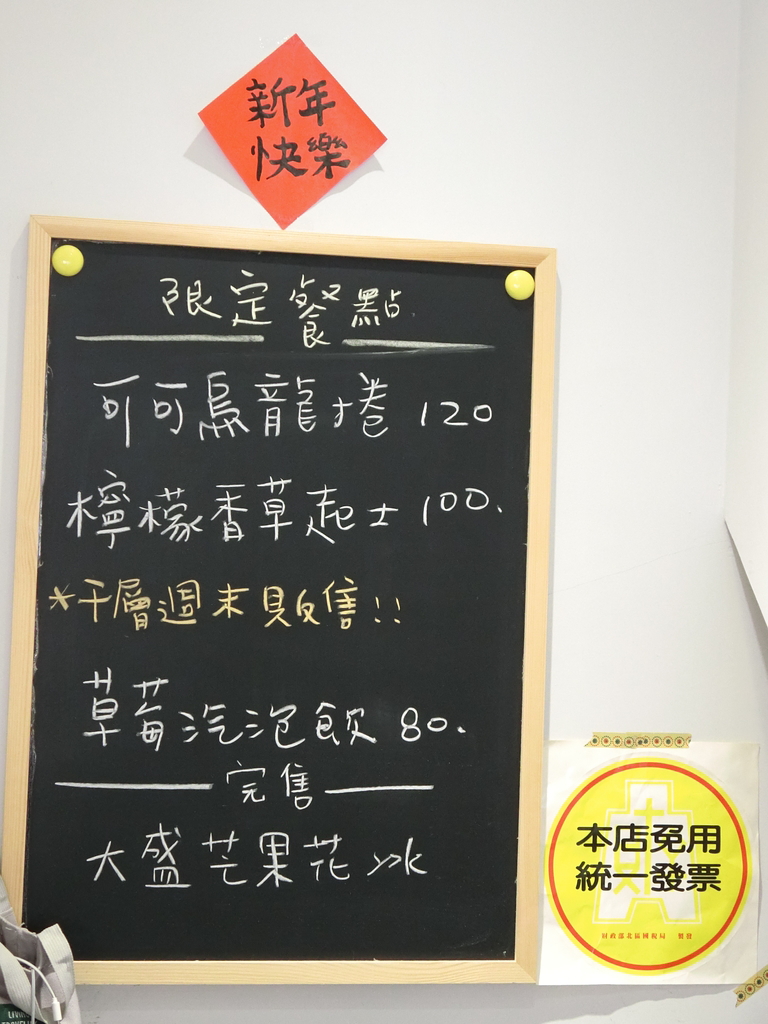 新年
快樂
限定餐點
可可烏龍捲 120
檸檬香草起士 100.
*千層週末販售!!
草莓汽泡飲 80.
完售
大盛芒果花冰
本店免用
統一發票
財政部北區國稅局 製發